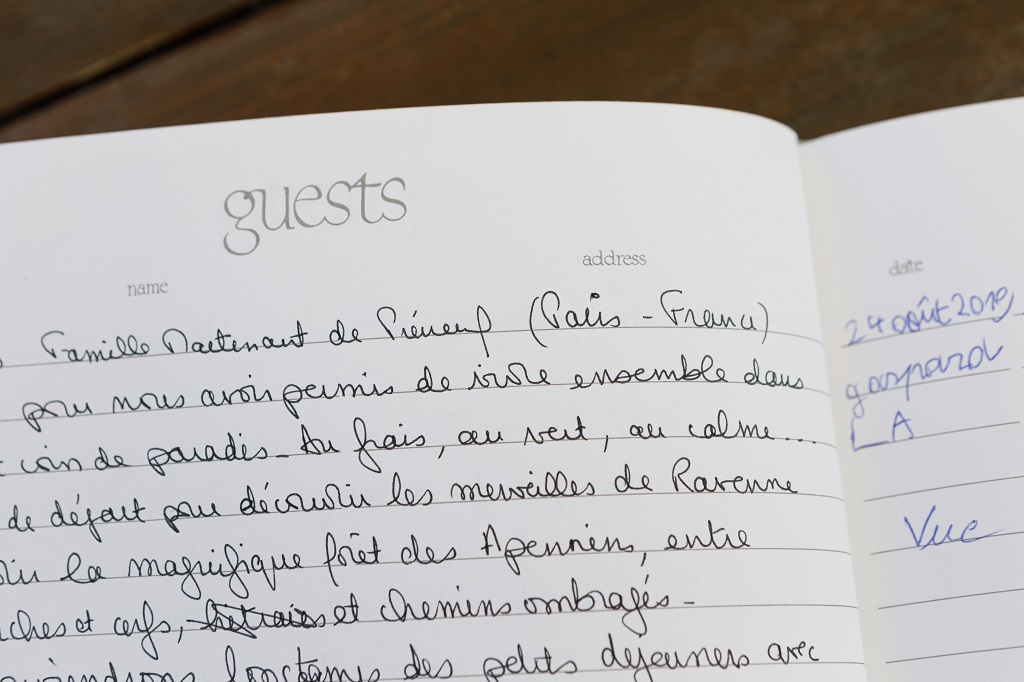 guests
name address
Famille de (Paris - France)
pour nous avoir permis de vivre ensemble dans
coin de paradis - Au frais, au vert, au calme...
de départ pour découvrir les merveilles de Ravenne
la magnifique forêt des Apennins, entre
et cerfs, et chemins ombragés -
longtemps des petits dejeuners avec
date
24 août 2019
gaspard
LA
Vue